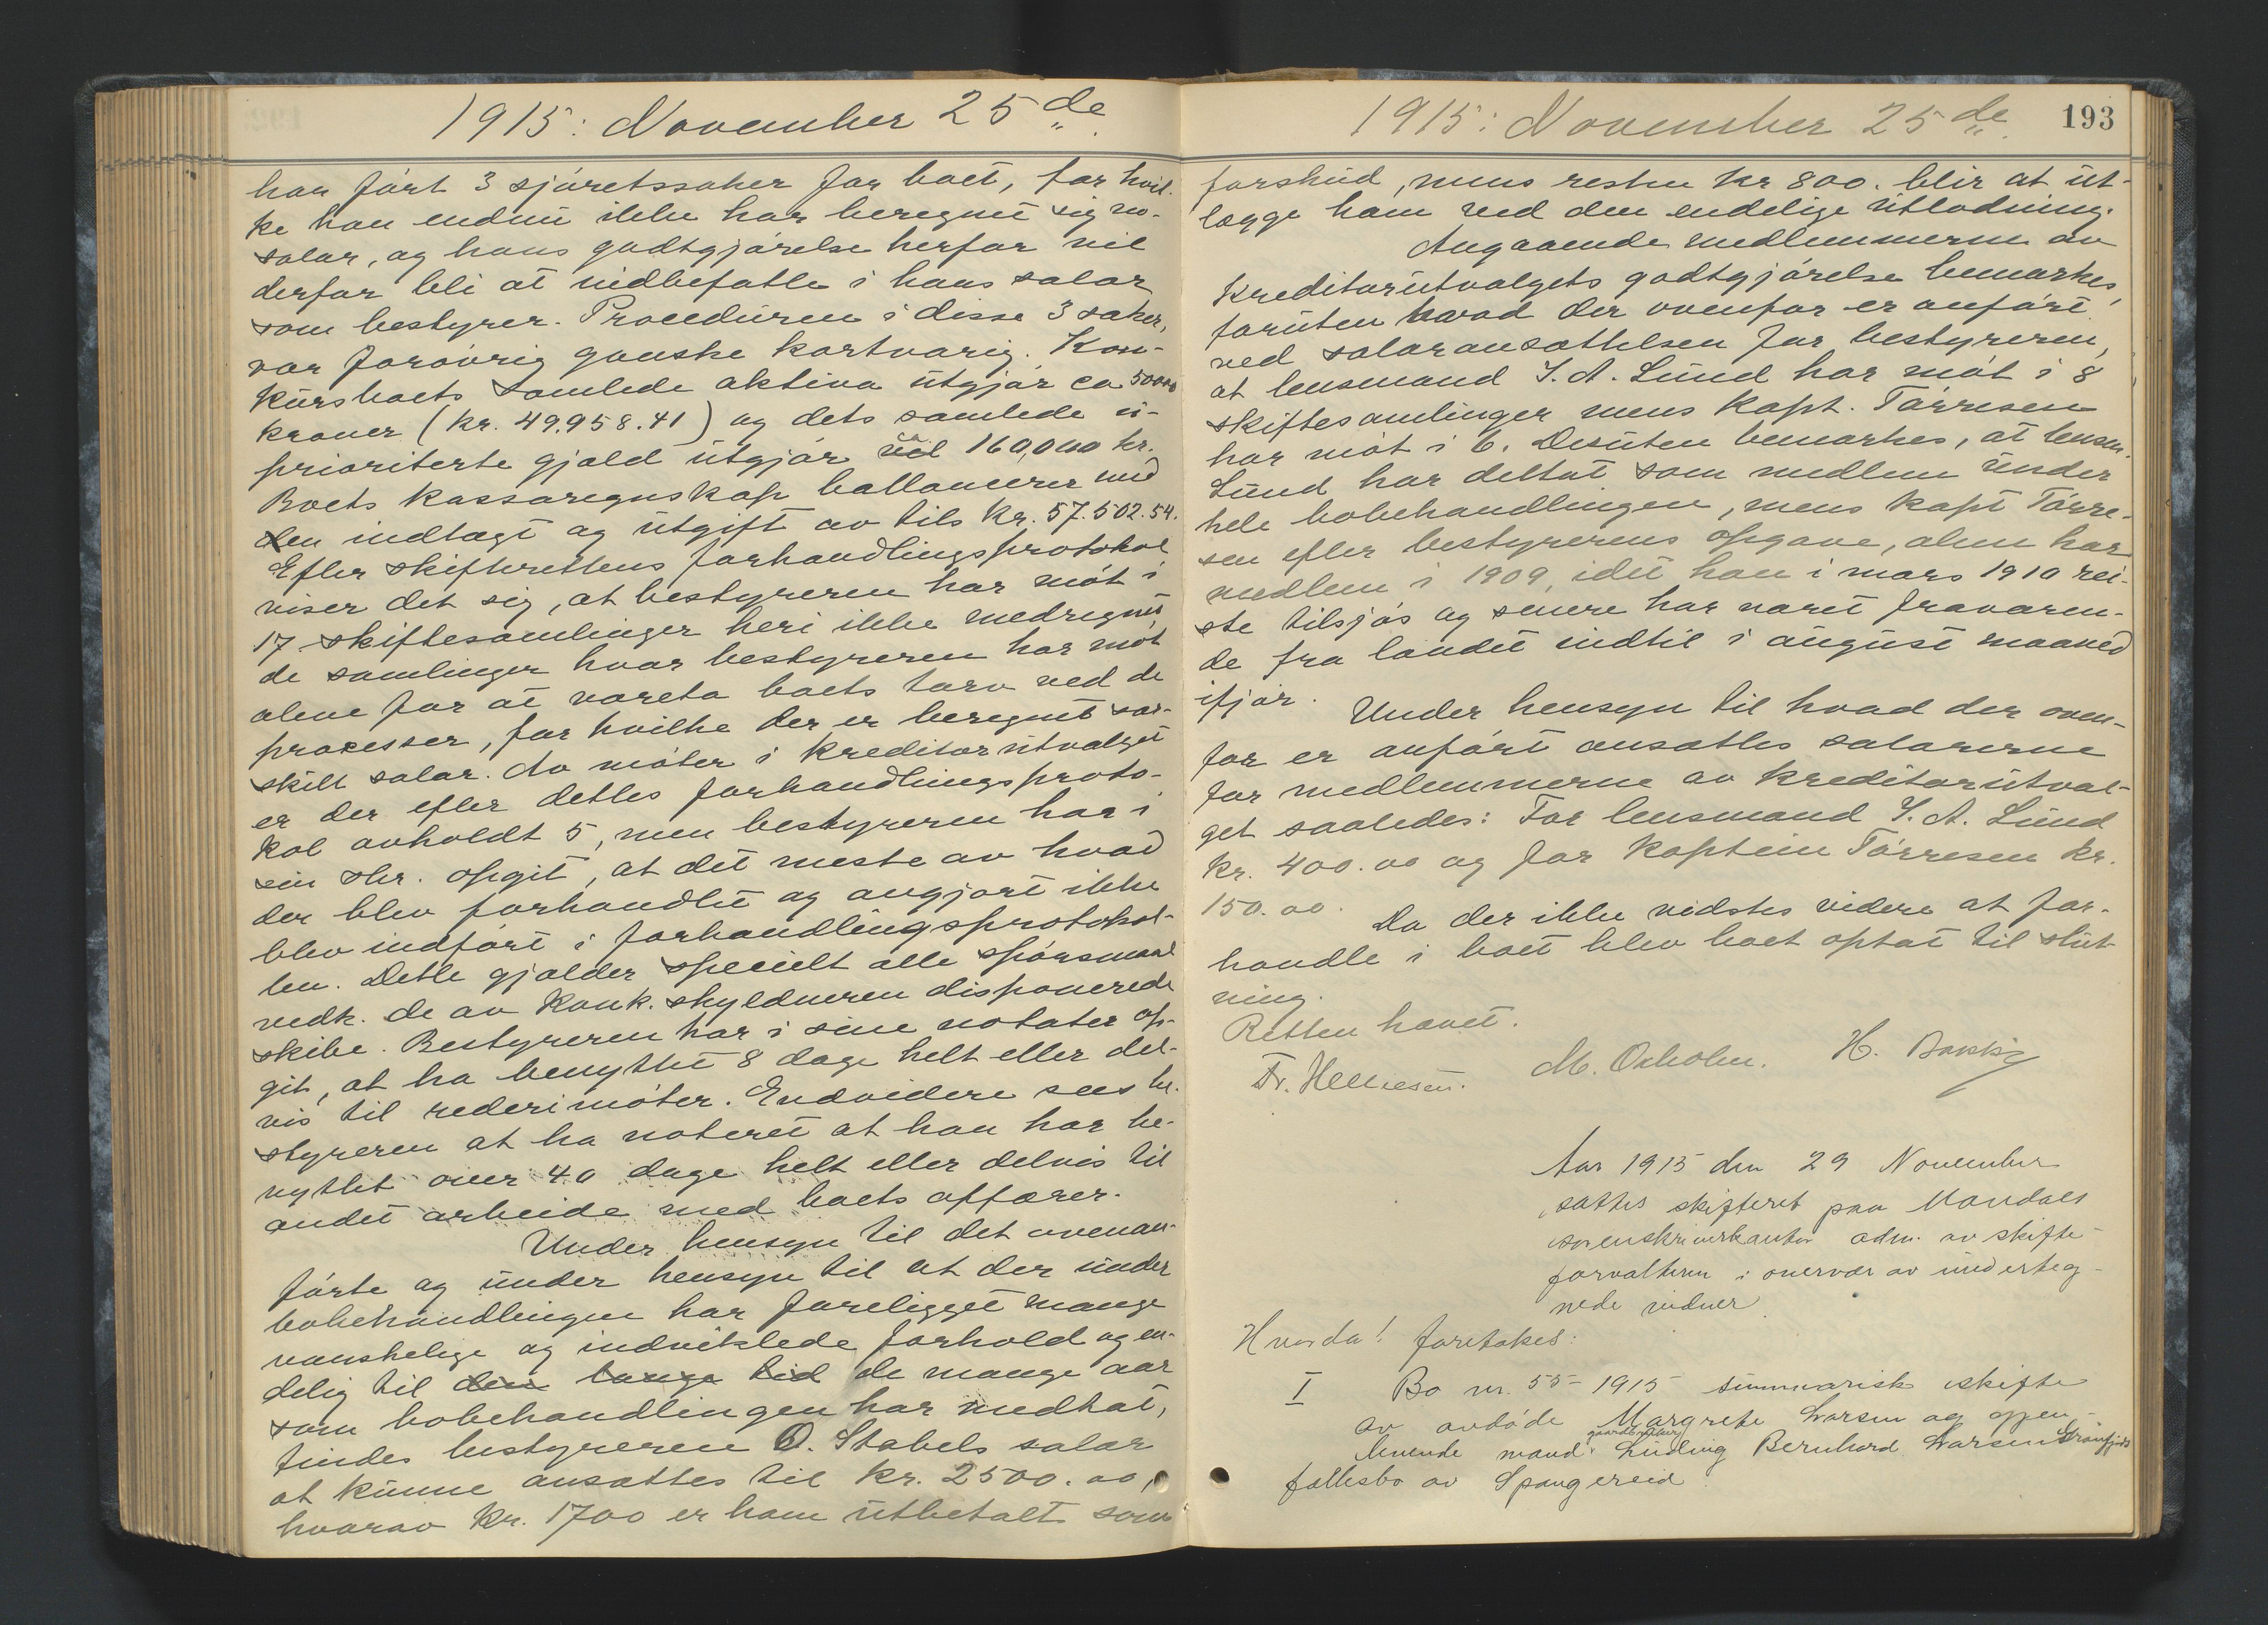 1915: November 25de
har ført 3 sjøretssaker for boet, for hvil-
ke han endnu ikke har beregnet sig no-
salær, og hans godtgjørelse herfor vil
derfor bli at indbefatte i hans salær
som bestyrer. Proceduren i disse 3 saker,
var forøvrig ganske kortvarig. Kon-
kursboets samlede aktiva utgjør ca 50000
kroner (kr. 49.958.41) og dets samlede u-
prioriterte gjæld utgjør ca 160,000 kr.
Boets kassaregnskap ballancerer med
en indtægt og utgift av tils kr. 57.502.54.
Efter skifterettens forhandlingsprotokol
viser det sig, at bestyreren har møt i
17 skiftesamlinger heri ikke medregnet
de samlinger hvor bestyreren har møt
alene for at vareta boets tarv ved de
processer, for hvilke der er beregnet sær-
skilt salær. Av møter i kreditorutvalget
er der efter dettes forhandlingsproto-
kol avholdt 5, men bestyreren har i
sin skr. opgit, at det meste av hvad
der blev forhandlet og avgjort ikke
blev indført i forhandlingsprotokol-
len. Dette gjælder specielt alle spørsmaal
vedk. de av konk. skyldneren disponerede
skibe. Bestyreren har i sine notater op-
git, at ha benyttet 8 dage helt eller del-
vis til rederimøter. Endvidere sees be-
styreren at ha noteret at han har be-
nyttet over 40 dage helt eller delvis til
andet arbeide med boets affærer.
Under hensyn til det ovenan-
førte og under hensyn til at der under
bobehandlingen har foreligget mange
vanskelige og indviklede forhold og en-
delig til den lange tid de mange aar
som bobehandlingen har medtat,
findes bestyreren O. Stabels salær
at kunne ansættes til kr. 2500.00,
hvorav kr. 1700 er ham utbetalt som
1915: November 25de
193
forskud, mens resten kr 800. blir at ut-
lægge ham ved den endelige utlodning.
Angaaende medlemmerne av
kreditorutvalgets godtgjørelse bemærkes,
foruten hvad der ovenfor er anført
ved salæransættelsen for bestyreren,
at lensmand I. A. Lund har møt i 8
skiftesamlinger mens kapt. Tørresen
har møt i 6. Desuten bemærkes, at lensm.
Lund har deltat som medlem under
hele bobehandlingen, mens kapt Tørre-
sen efter bestyrerens opgave, alene har
medlem i 1909, idet han i mars 1910 rei-
ste tilsjøs og senere har været fraværen-
de fra landet indtil i august maaned
ifjor.
Under hensyn til hvad der oven-
for er anført ansættes salærerne
for medlemmerne av kreditorutval-
get saaledes: For lensmand I. A. Lund
kr. 400.00 og for kaptein Tørresen kr.
150.00.
Da der ikke vidstes videre at for-
handle i boet blev boet optat til slut-
ning.
Retten hævet.
Fr. Helliesen. M. Oxholm. H. Bakke
Aar 1915 den 29 November
sattes skifteret paa Mandals
sorenskriverkontor adm. av skifte-
forvalteren i overvær av underteg-
nede vidner
Hvorda! foretokes:
I Bo nr. 55-1915 summarisk skifte
av avdøde Margrete Larsen og gjen-
gaardbruker
levende mand Luding Bernhard Larsen
fællesbo av Spangereid